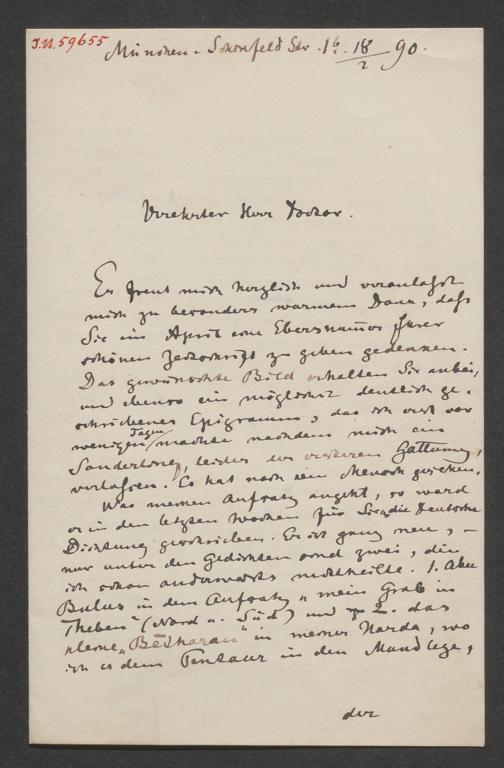 I.N. 59655
München. Schönfeld Str. 16. 18/2 90.
Verehrter Herr Doctor.
Es freut mich herzlich und veranlaßt
mich zu besonders warmem Dank, daß
Sie im April eine Ebersnummer Ihrer
schönen Zeitschrift zu geben gedenken.
Das gewünschte Bild erhalten Sie anbei,
und ebenso ein möglichst deutlich ge-
schriebenes Epigramm, das ich erst vor
wenigen Tagen machte nachdem mich ein
Sonderling, leider der Gattung,
verlassen. Es hat noch kein Mensch gesehen.
Was meinen Aufsatz angeht, so ward
er in den letzten Wochen für Sie, die Deutsche
Dichtung geschrieben. Er ist ganz neu, –
nur unter den Gedichten sind zwei, die
ich schon anderwärts mittheilte. 1. Abu
Bulus in dem Aufsatz „mein Grab in
Theben" (Nord u. Süd) und 2. das
kleine „Beharau" in meiner Narda, wo
ich es dem Pentaur in den Mund lege,
der